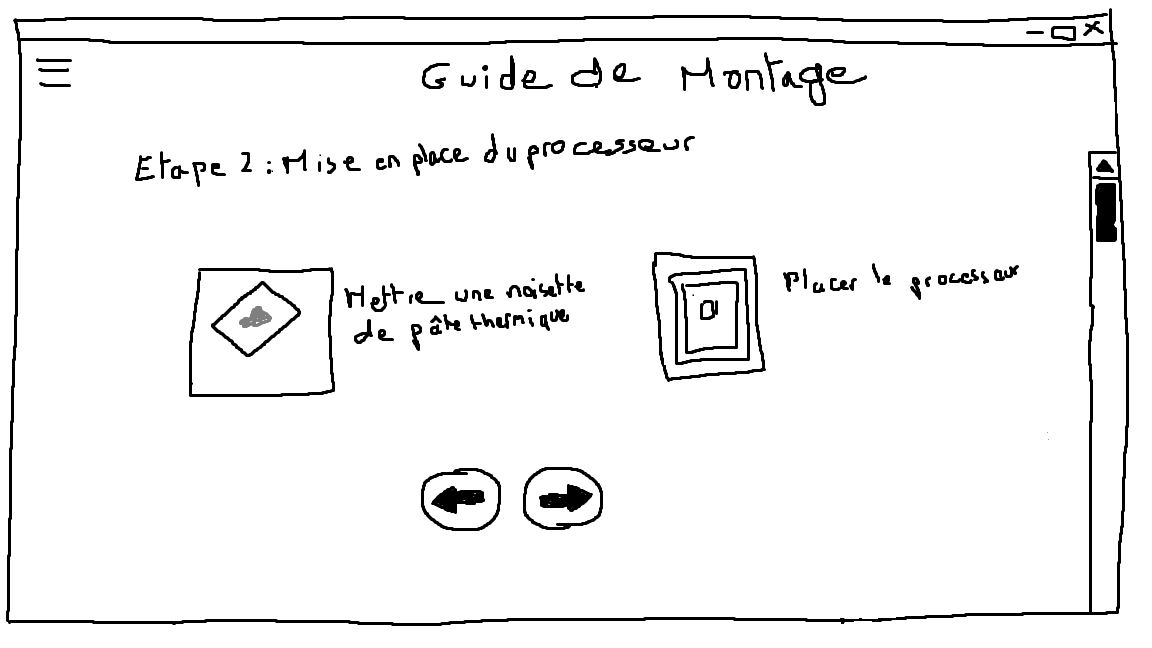 Guide de Montage
Etape 2 : Mise en place du processeur
Mettre une noisette
de pâte thermique
Placer le processeur